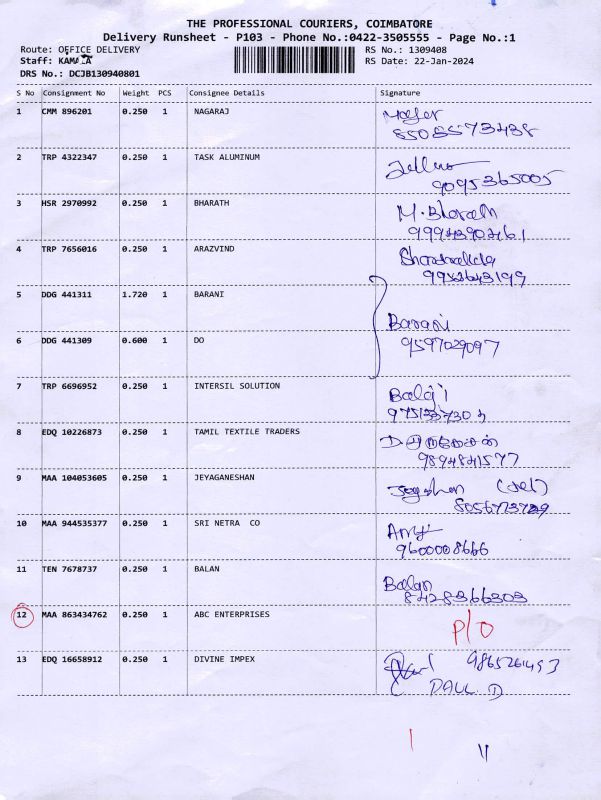 THE PROFESSIONAL COURIERS, COIMBATORE
Delivery Runsheet - P103 - Phone No.:0422-3505555 - Page No.:1
Route: OFFICE DELIVERY RS No.: 1309408
Staff: KAMALA RS Date: 22-Jan-2024
DRS No.: DCJB130940801
S No Consignment No Weight PCS Consignee Details Signature
1 CMM 896201 0.250 1 NAGARAJ
2 TRP 4322347 0.250 1 TASK ALUMINUM
9095365005
3 HSR 2970992 0.250 1 BHARATH M. Bharath
4 TRP 7656016 0.250 1 ARAZVIND
9952643199
5 DDG 441311 1.720 1 BARANI
Barani
6 DDG 441309 0.600 1 DO
9597029097
7 TRP 6696952 0.250 1 INTERSIL SOLUTION Balaji
8 EDQ 10226873 0.250 1 TAMIL TEXTILE TRADERS
9894841577
9 MAA 104053605 0.250 1 JEYAGANESHAN
10 MAA 944535377 0.250 1 SRI NETRA CO
9600008666
11 TEN 7678737 0.250 1 BALAN Balan
8428366303
12 MAA 863434762 0.250 1 ABC ENTERPRISES P/O
13 EDQ 16658912 0.250 1 DIVINE IMPEX 9865261493
PAUL. D